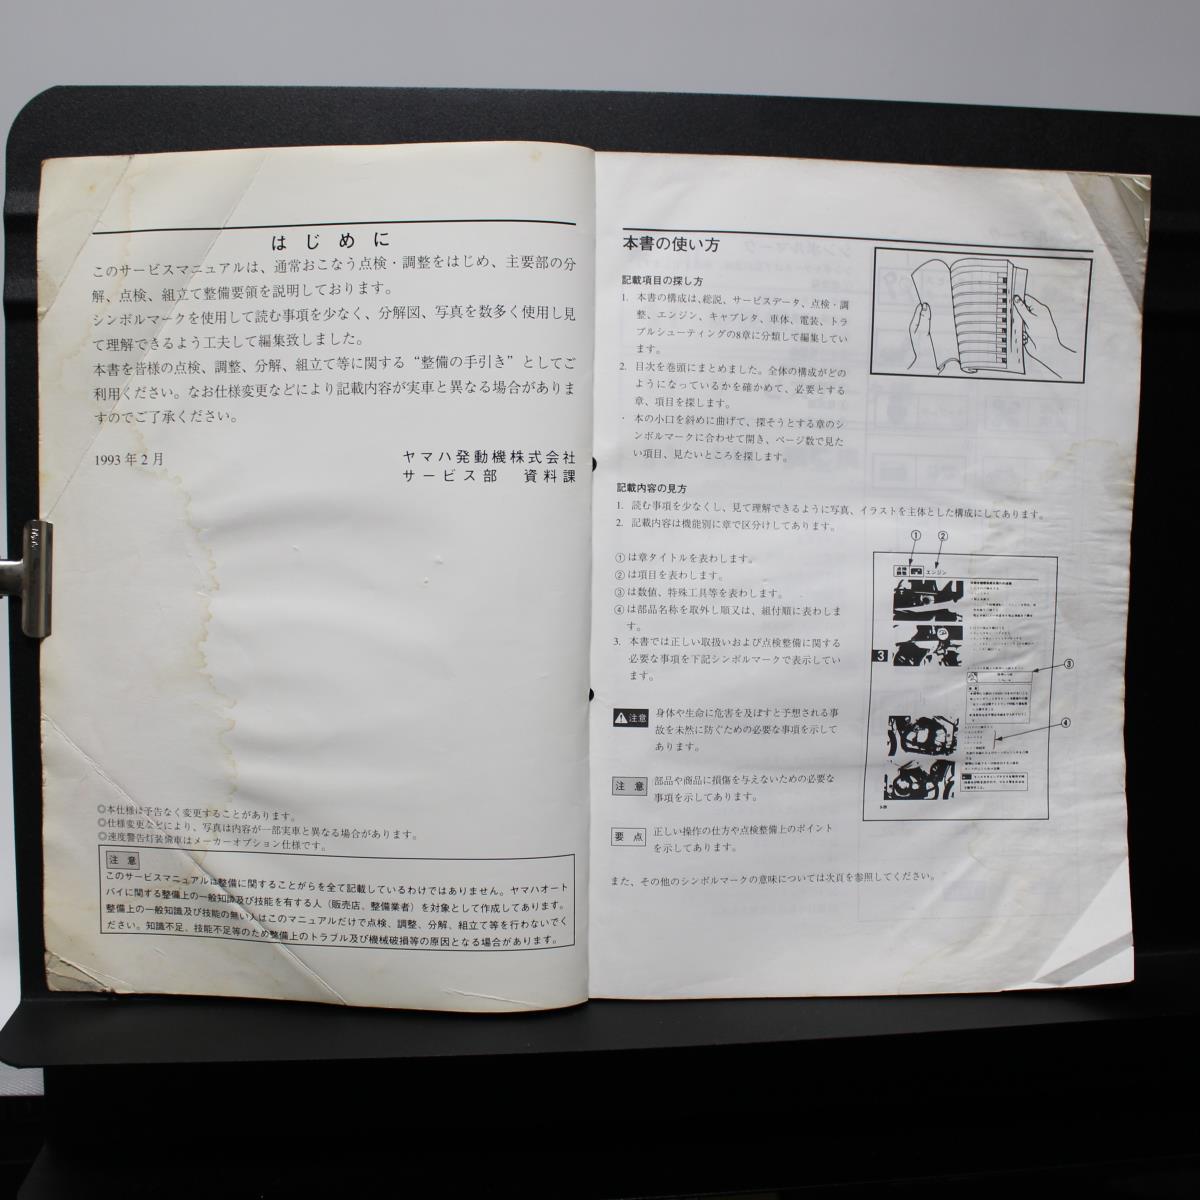 はじめに
このサービスマニュアルは、通常おこなう点検・調整をはじめ、主要部の分
解、点検、組立て整備要領を説明しております。
シンボルマークを使用して読む事項を少なく、分解図、写真を数多く使用し見
て理解できるよう工夫して編集致しました。
本書を皆様の点検、調整、分解、組立て等に関する“整備の手引き”としてご
利用ください。なお仕様変更などにより記載内容が実車と異なる場合がありま
すのでご了承ください。
1993年2月
ヤマハ発動機株式会社
サービス部 資料課
◎本仕様は予告なく変更することがあります。
◎仕様変更などにより、写真は内容が一部実車と異なる場合があります。
◎速度警告灯装備車はメーカーオプション仕様です。
注意
このサービスマニュアルは整備に関することがらを全て記載しているわけではありません。ヤマハオート
バイに関する整備上の一般知識及び技能を有する人(販売店、整備業者)を対象として作成してあります。
整備上の一般知識及び技能の無い人はこのマニュアルだけで点検、調整、分解、組立て等を行わないでく
ださい。知識不足、技能不足等のため整備上のトラブル及び機械破損等の原因となる場合があります。
本書の使い方
記載項目の探し方
1. 本書の構成は、総説、サービスデータ、点検・調
整、エンジン、キャブレタ、車体、電装、トラ
ブルシューティングの8章に分類して編集してい
ます。
2. 目次を巻頭にまとめました。全体の構成がどの
ようになっているかを確かめて、必要とする
章、項目を探します。
・ 本の小口を斜めに曲げて、探そうとする章のシ
ンボルマークに合わせて開き、ページ数で見た
い項目、見たいところを探します。
記載内容の見方
1. 読む事項を少なくし、見て理解できるように写真、イラストを主体とした構成にしてあります。
2. 記載内容は機能別に章で区分けしてあります。
①は章タイトルを表わします。
②は項目を表わします。
③は数値、特殊工具等を表わします。
④は部品名称を取外し順又は、組付順に表わしま
す。
3. 本書では正しい取扱いおよび点検整備に関する
必要な事項を下記シンボルマークで表示してい
ます。
注意
身体や生命に危害を及ぼすと予想される事
故を未然に防ぐための必要な事項を示して
あります。
注意
部品や商品に損傷を与えないための必要な
事項を示してあります。
要点
正しい操作の仕方や点検整備上のポイント
を示してあります。
また、その他のシンボルマークの意味については次頁を参照してください。
①
②
点検
調整
エンジン
3
③
④